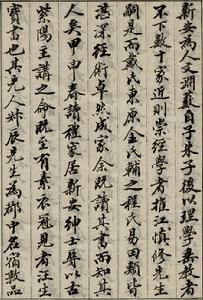 新安爲人文淵藪自子朱子後以理學爲教者
不下數十家近則崇經學者推江慎修先生
嗣是而戴氏東原金氏輔之程氏易田類皆
湛深經術卓然成家余既讀其書而知其
人矣甲申春讀禮家居新安紳士畀以古
紫陽主講之命既至有素衣冠見者汪生
寶書也其先人世辰先生爲郡中名宿敦品